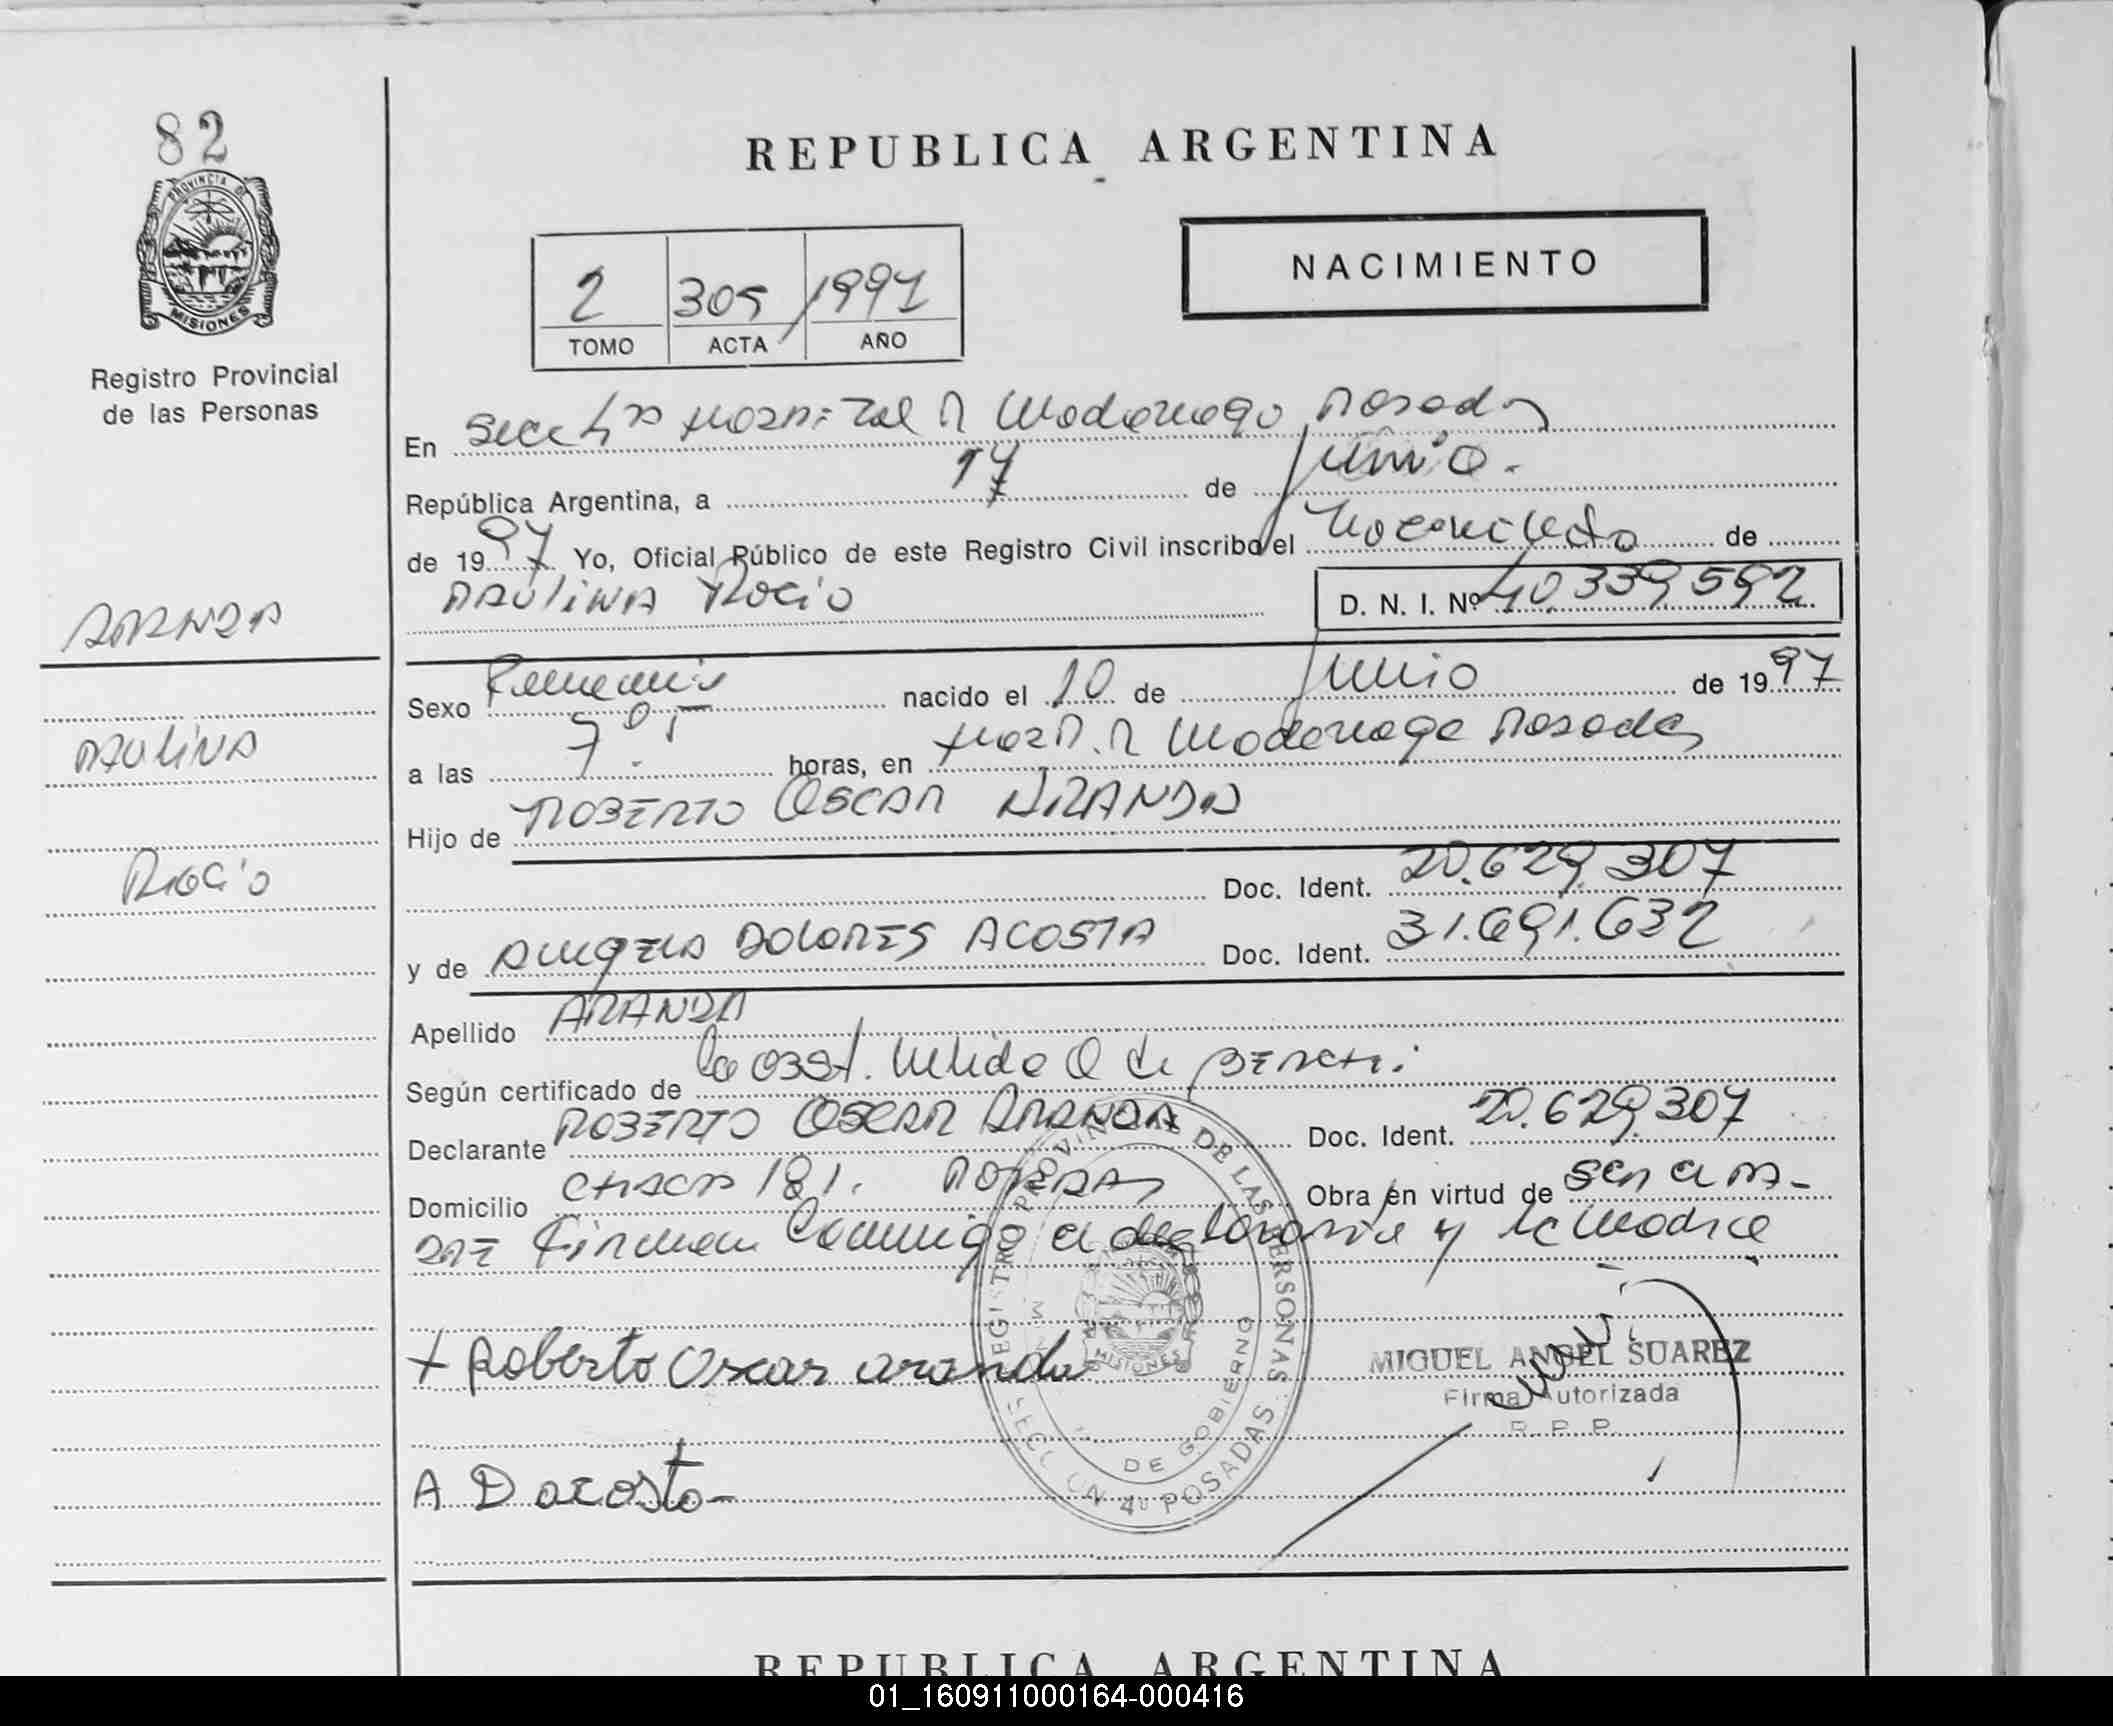 82
PROVINCIA D
MISIONES
Registro Provincial
de las Personas
ARANDA
PAULINA
Rocio
REPUBLICA ARGENTINA
2 305 1997
TOMO ACTA AÑO
NACIMIENTO
En Hospital R Madariaga Posadas
República Argentina, a 17 de Junio.
de 1997 Yo, Oficial Público de este Registro Civil inscribo el nacimiento de
PAULINA ROCIO D. N. I. Nº 40.339.592
Sexo Femenino nacido el 10 de Junio de 1997
a las 7 05 horas, en Hosp. R Madariaga Posadas
Hijo de ROBERTO OSCAR ARANDA
Doc. Ident. 20.629.307
y de ANGELA DOLORES ACOSTA Doc. Ident. 31.691.632
Apellido ARANDA
Según certificado de la obst. Nelida O de
Declarante ROBERTO OSCAR ARANDA Doc. Ident. 20.629.307
Domicilio CHACO 181. POSADAS Obra en virtud de ser el PA-
DRE Firman Conmigo el declarante y la Madre
+ Roberto Oscar aranda
A D acosta-
REGISTRO PROVINCIAL DE LAS PERSONAS
SECCION 4º POSADAS
DE GOBIERNO
MISIONES
MIGUEL ANGEL SUAREZ
Firma Autorizada
R. P. P.
REPUBLICA ARGENTINA
01_160911000164-000416